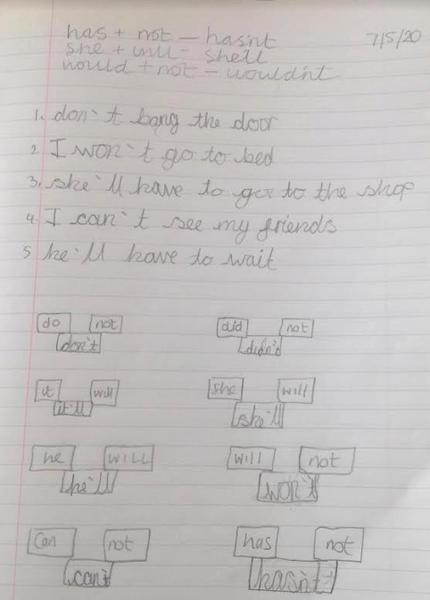 has + not — hasn't
7/5/20
she + will - she'll
would + not - wouldn't
1. don't bang the door
2 I won't go to bed
3. she'll have to go to the shop
4. I can't see my friends
5 he'll have to wait
do not did not
don't didn't
it will she will
it'll she'll
he will will not
he'll won't
Can not has not
can't hasn't